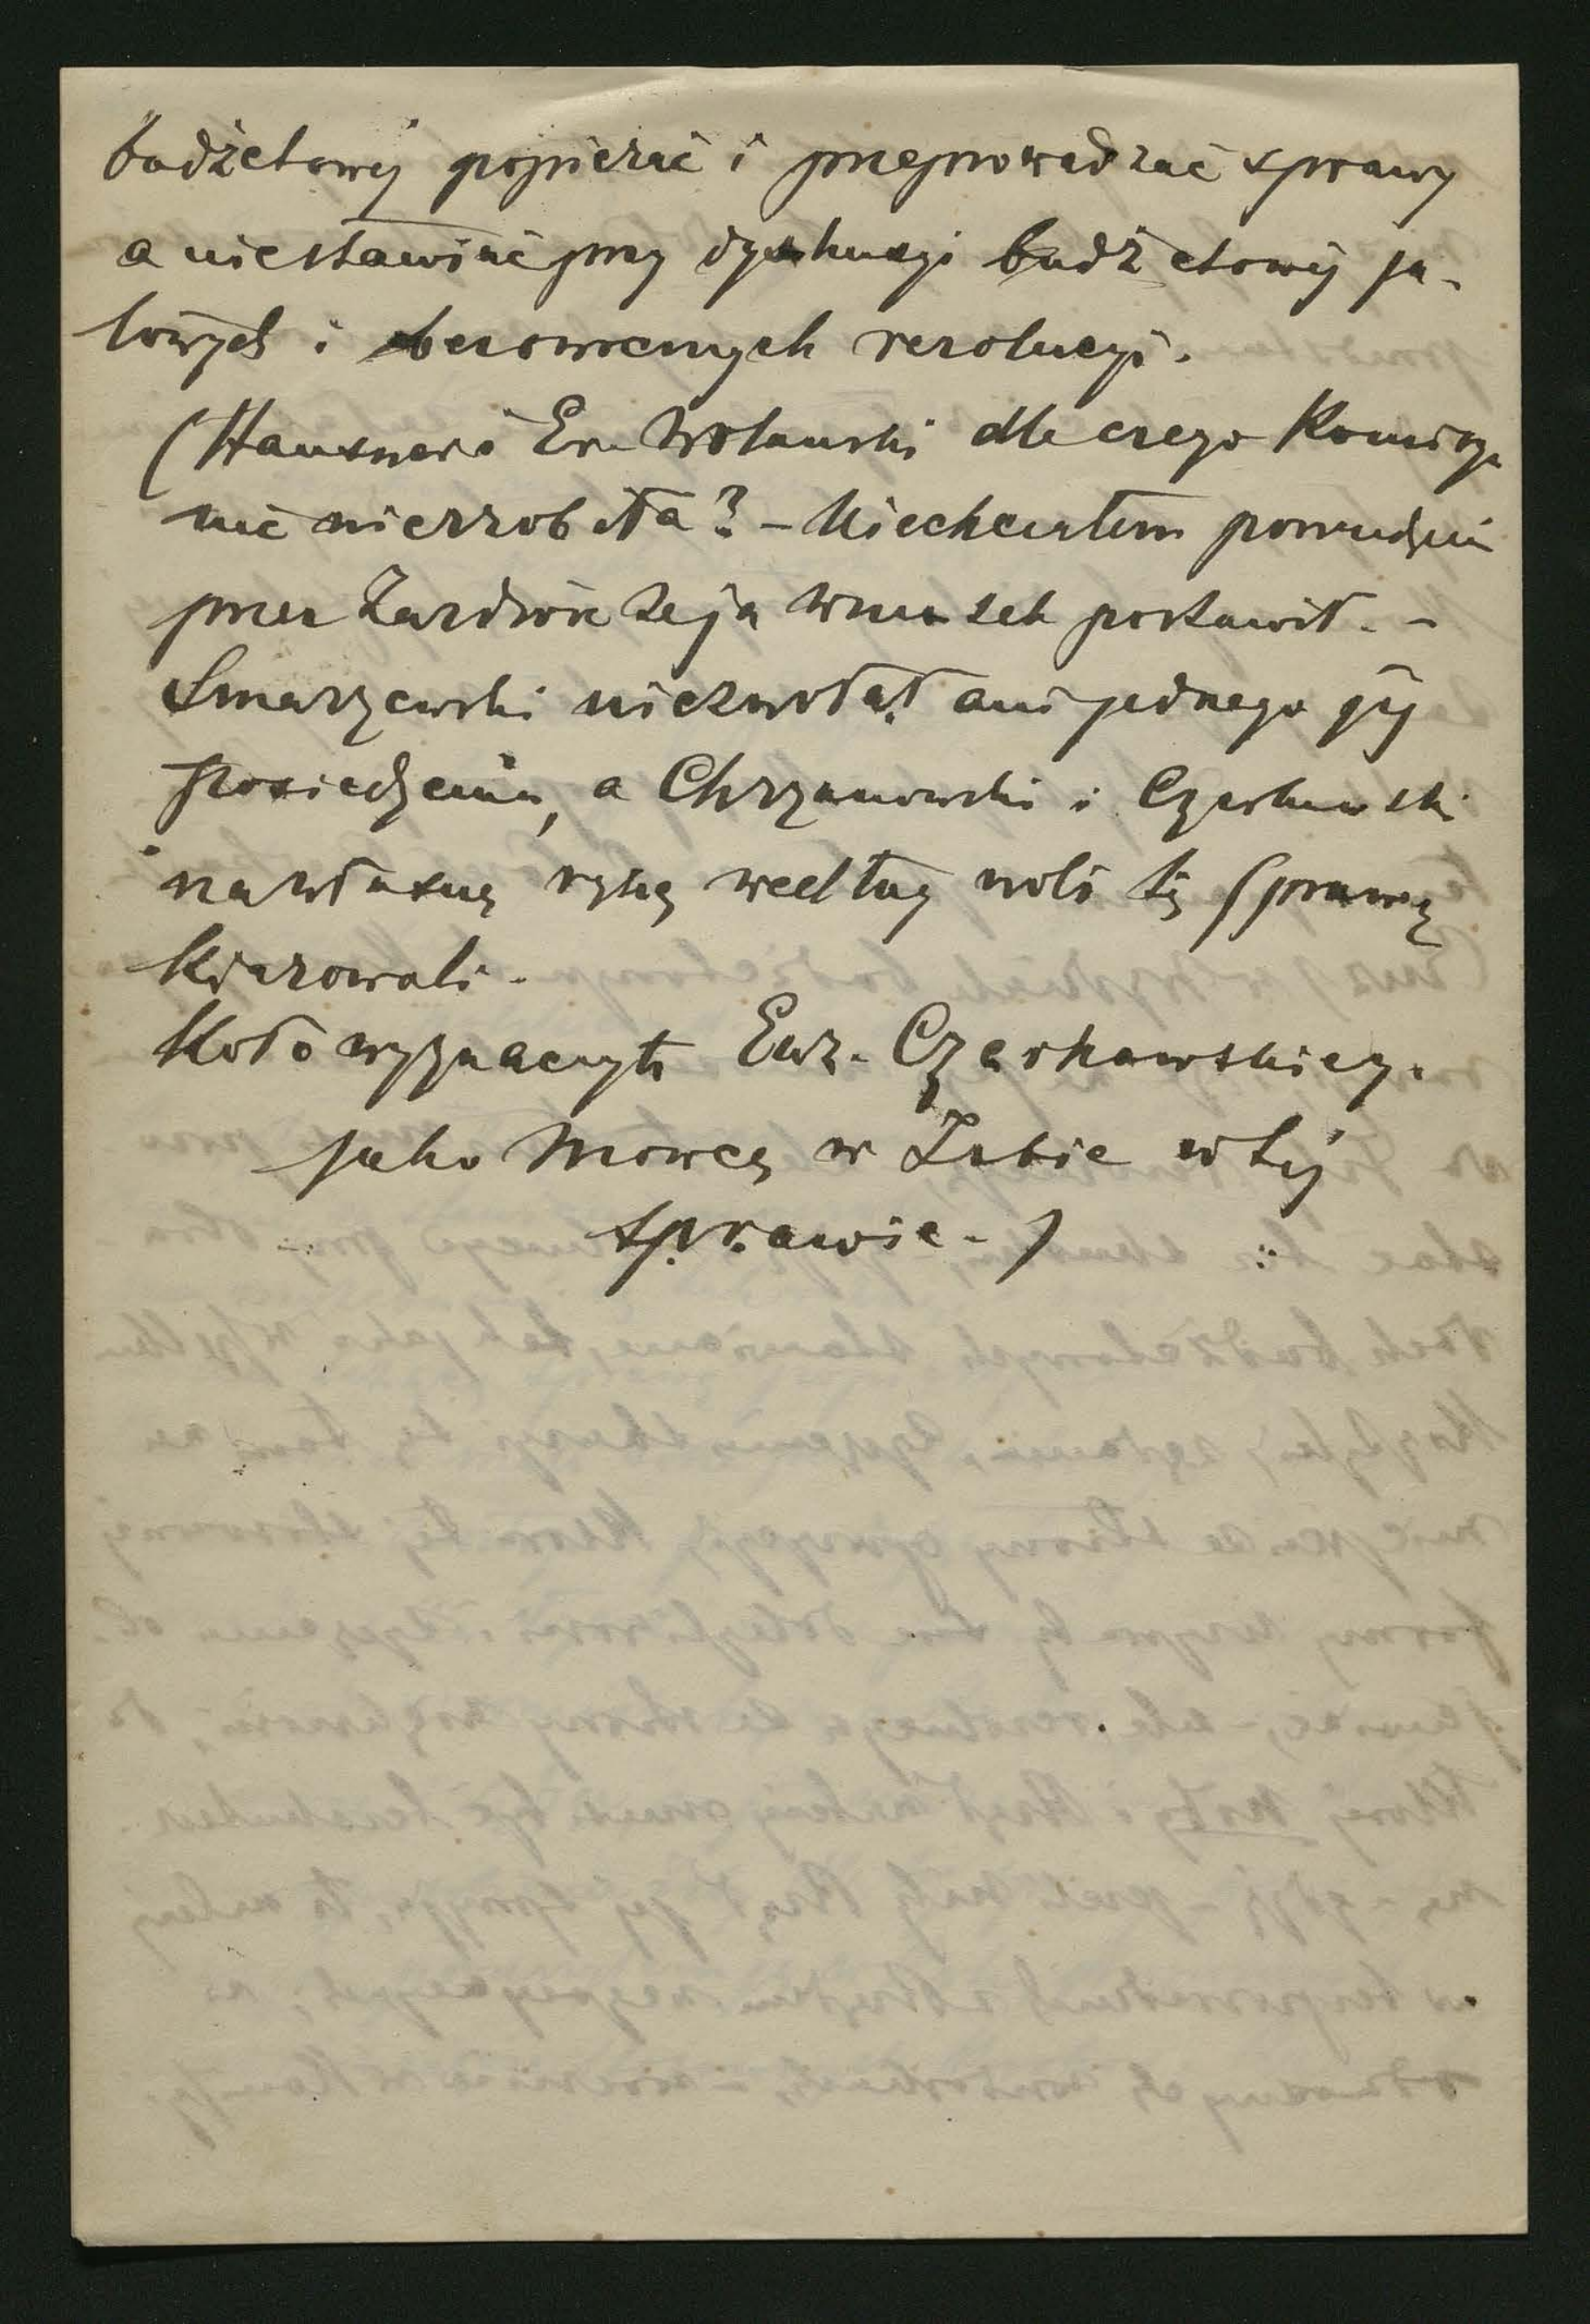 budżetowéj popierać i przeprowadzać sprawy
a niestawiać przy dyskusyi budżetowéj ja-
łowych i bezowocnych rezolucyi.
(Hausner i Er. Wolański dla czego Komisya
nic niezrobiła? – Niechciałem powiedzieć
przez zazdrość że ja wniosek postawił. –
Smarzewski niezwołał ani jednego jéj
posiedzenia, a Chrzanowski i Czerkawski
na własną rękę według woli tę sprawę
kierowali.
Koło wyznaczyło Euz. Czerkawskiego
jako Mowcę w Izbie w téj
sprawie. )